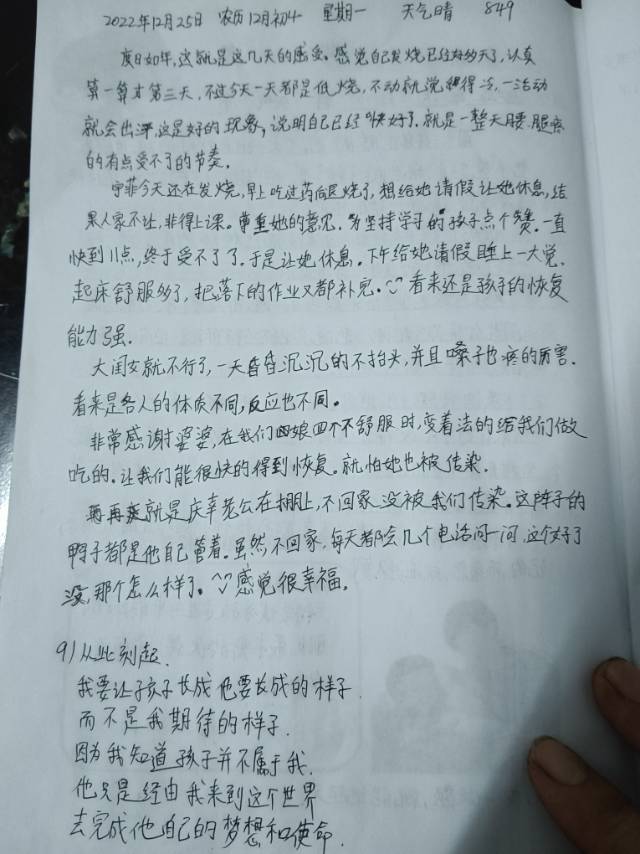 2022年12月25日 农历12月初4 星期一 天气晴 849
度日如年,这就是这几天的感受。感觉自己发烧已经好多天了,认真
算一算才第三天,不过今天一天都是低烧,不动就觉得冷,一活动
就会出汗这是好的现象,说明自己已经快好了。就是一整天腰.腿疼
的有点受不了的节奏。
宇菲今天还在发烧,早上吃过药后退烧了,想给她请假让她休息,结
果人家不让,非得上课。尊重她的意见.为坚持学习的孩子点个赞。一直
快到11点,终于受不了了.于是让她休息。下午给她请假睡上一大觉,
起床舒服多了,把落下的作业又都补完。看来还是孩子的恢复
能力强.
大闺女就不行了,一天昏昏沉沉的不抬头,并且嗓子也疼的厉害.
看来是各人的体质不同,反应也不同。
非常感谢婆婆,在我们娘四个不舒服时,变着法的给我们做
吃的。让我们能很快的得到恢复。就怕她也被传染.
再就是庆幸老公在棚上,不回家没被我们传染。这阵子的
鸭子都是他自己管着。虽然不回家,每天都会几个电话问一问,这个好了
没,那个怎么样了。感觉很幸福。
9)从此刻起.
我要让孩子长成他要长成的样子.
而不是我期待的样子.
因为我知道孩子并不属于我.
他只是经由我来到这个世界
去完成他自己的梦想和使命.